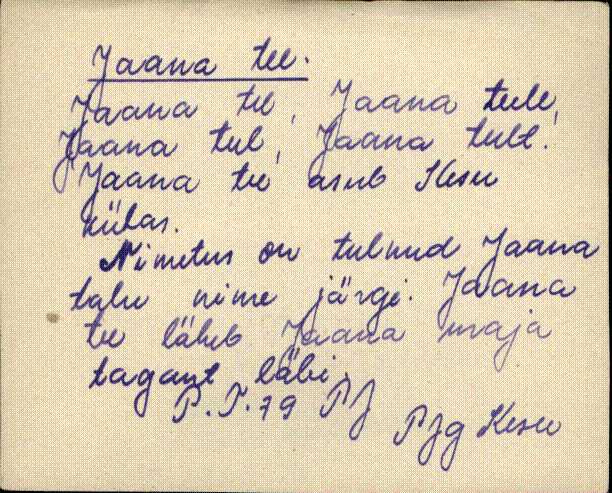 Jaana tee.
Jaana te, Jaana teele,
Jaana teel, Jaana teelt.
Jaana tee asub Kesu
külas.
Nimetus on tulnud Jaana
talu nime järgi. Jaana
tee läheb Jaana maja
tagant läbi.
P. T. 79 PJ
PJg Kesu